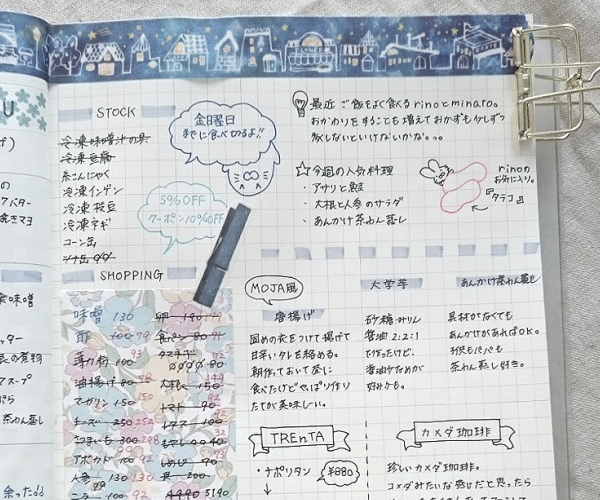 STOCK
冷凍味噌汁の具
冷凍豆腐
糸こんにゃく
冷凍インゲン
冷凍枝豆
冷凍ネギ
コーン缶
金曜日
までに食べ切るよ!!
5%OFF
クーポン10%OFF
最近ご飯をよく食べるrinoとminato。
おかわりをすることも増えておかずも少しずつ
多くしないといけないかな。。。
☆今週の人気料理
・アサリと鮭
・大根と人参のサラダ
・あんかけ茶わん蒸し
rinoの
お気に入り。
『タテコ』
SHOPPING
味噌 130
酢 100 79
薄力粉 100 93
油揚げ 80
マーガリン 150
チーズ 250
さつまいも 300
アボカド 100 92
人参 130
卵 190
食パン 80
玉ネギ
大根 150
トマト 90
もやし 40
しめじ 90
5190
MOJA風
唐揚げ
固めの衣をつけて揚げて
甘辛いタレを絡める。
朝作っておいて昼に
食べたけどやっぱり作り
たてが美味しい。
大学芋
砂糖:みりん
醤油 2:2:1
で作ったけど、
醤油少なめが
好みかも。
あんかけ茶わん蒸し
具材がなくても
あんかけがあればOK。
子供もパパも
茶わん蒸し好き。
TRENTA
・ナポリタン
¥880
カメダ珈琲
珍しいカメダ珈琲。
コメダみたいな感じだと思ったら
余った